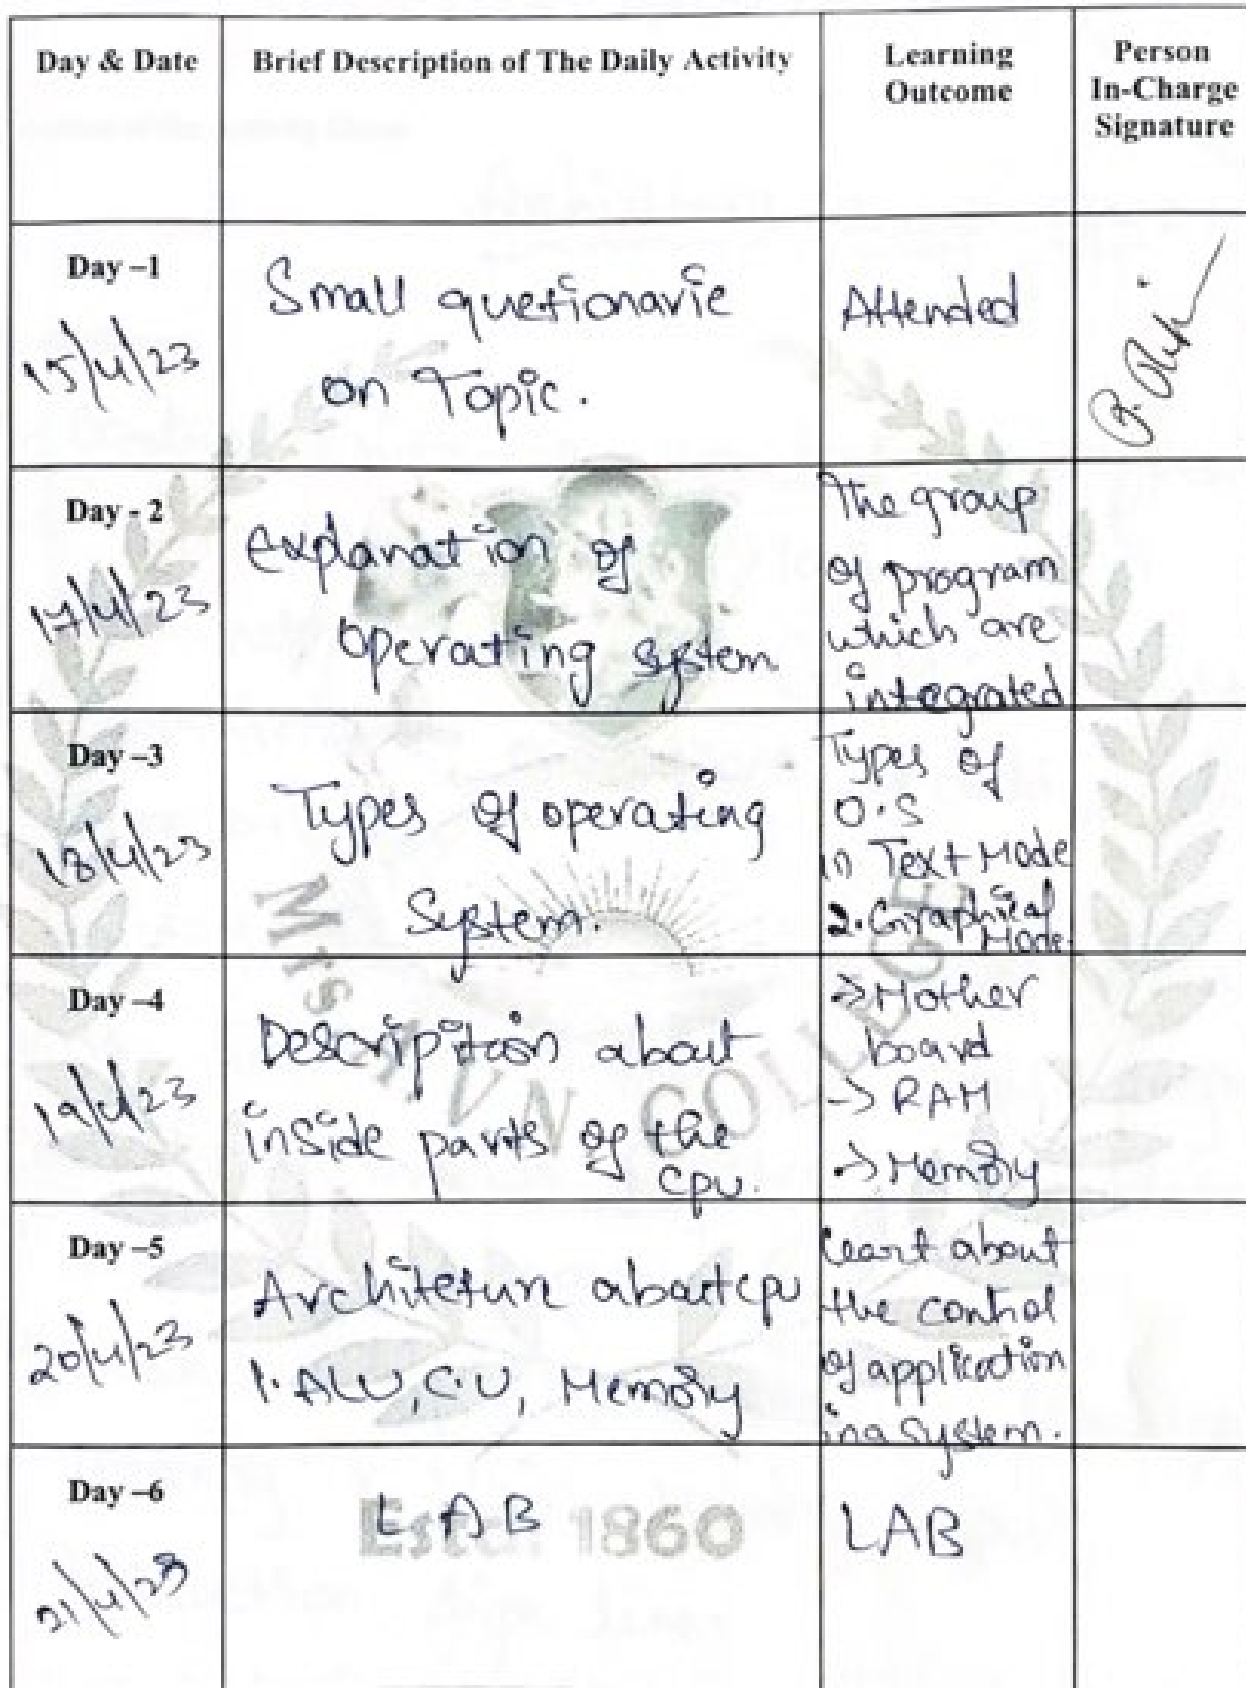 Day & Date
Brief Description of The Daily Activity
Learning
Outcome
Person
In-Charge
Signature
Day –1
15/4/23
Small quetionarie
on Topic.
Attended
Day - 2
17/4/23
explanation of
operating system
The group
of program
which are
integrated
Day –3
18/4/23
Types of operating
System.
Types of
O.S
1) Text Mode
2. Graphical
Mode.
Day –4
19/4/23
Description about
inside parts of the
cpu.
-> Mother
board
-> RAM
-> Memory
Day –5
20/4/23
Architeture about cpu
1. ALU, C.U, Memory
learnt about
the control
of application
in a system.
Day –6
21/4/23
LAB
LAB
Mrs
AVN COLLEGE
Estd 1860